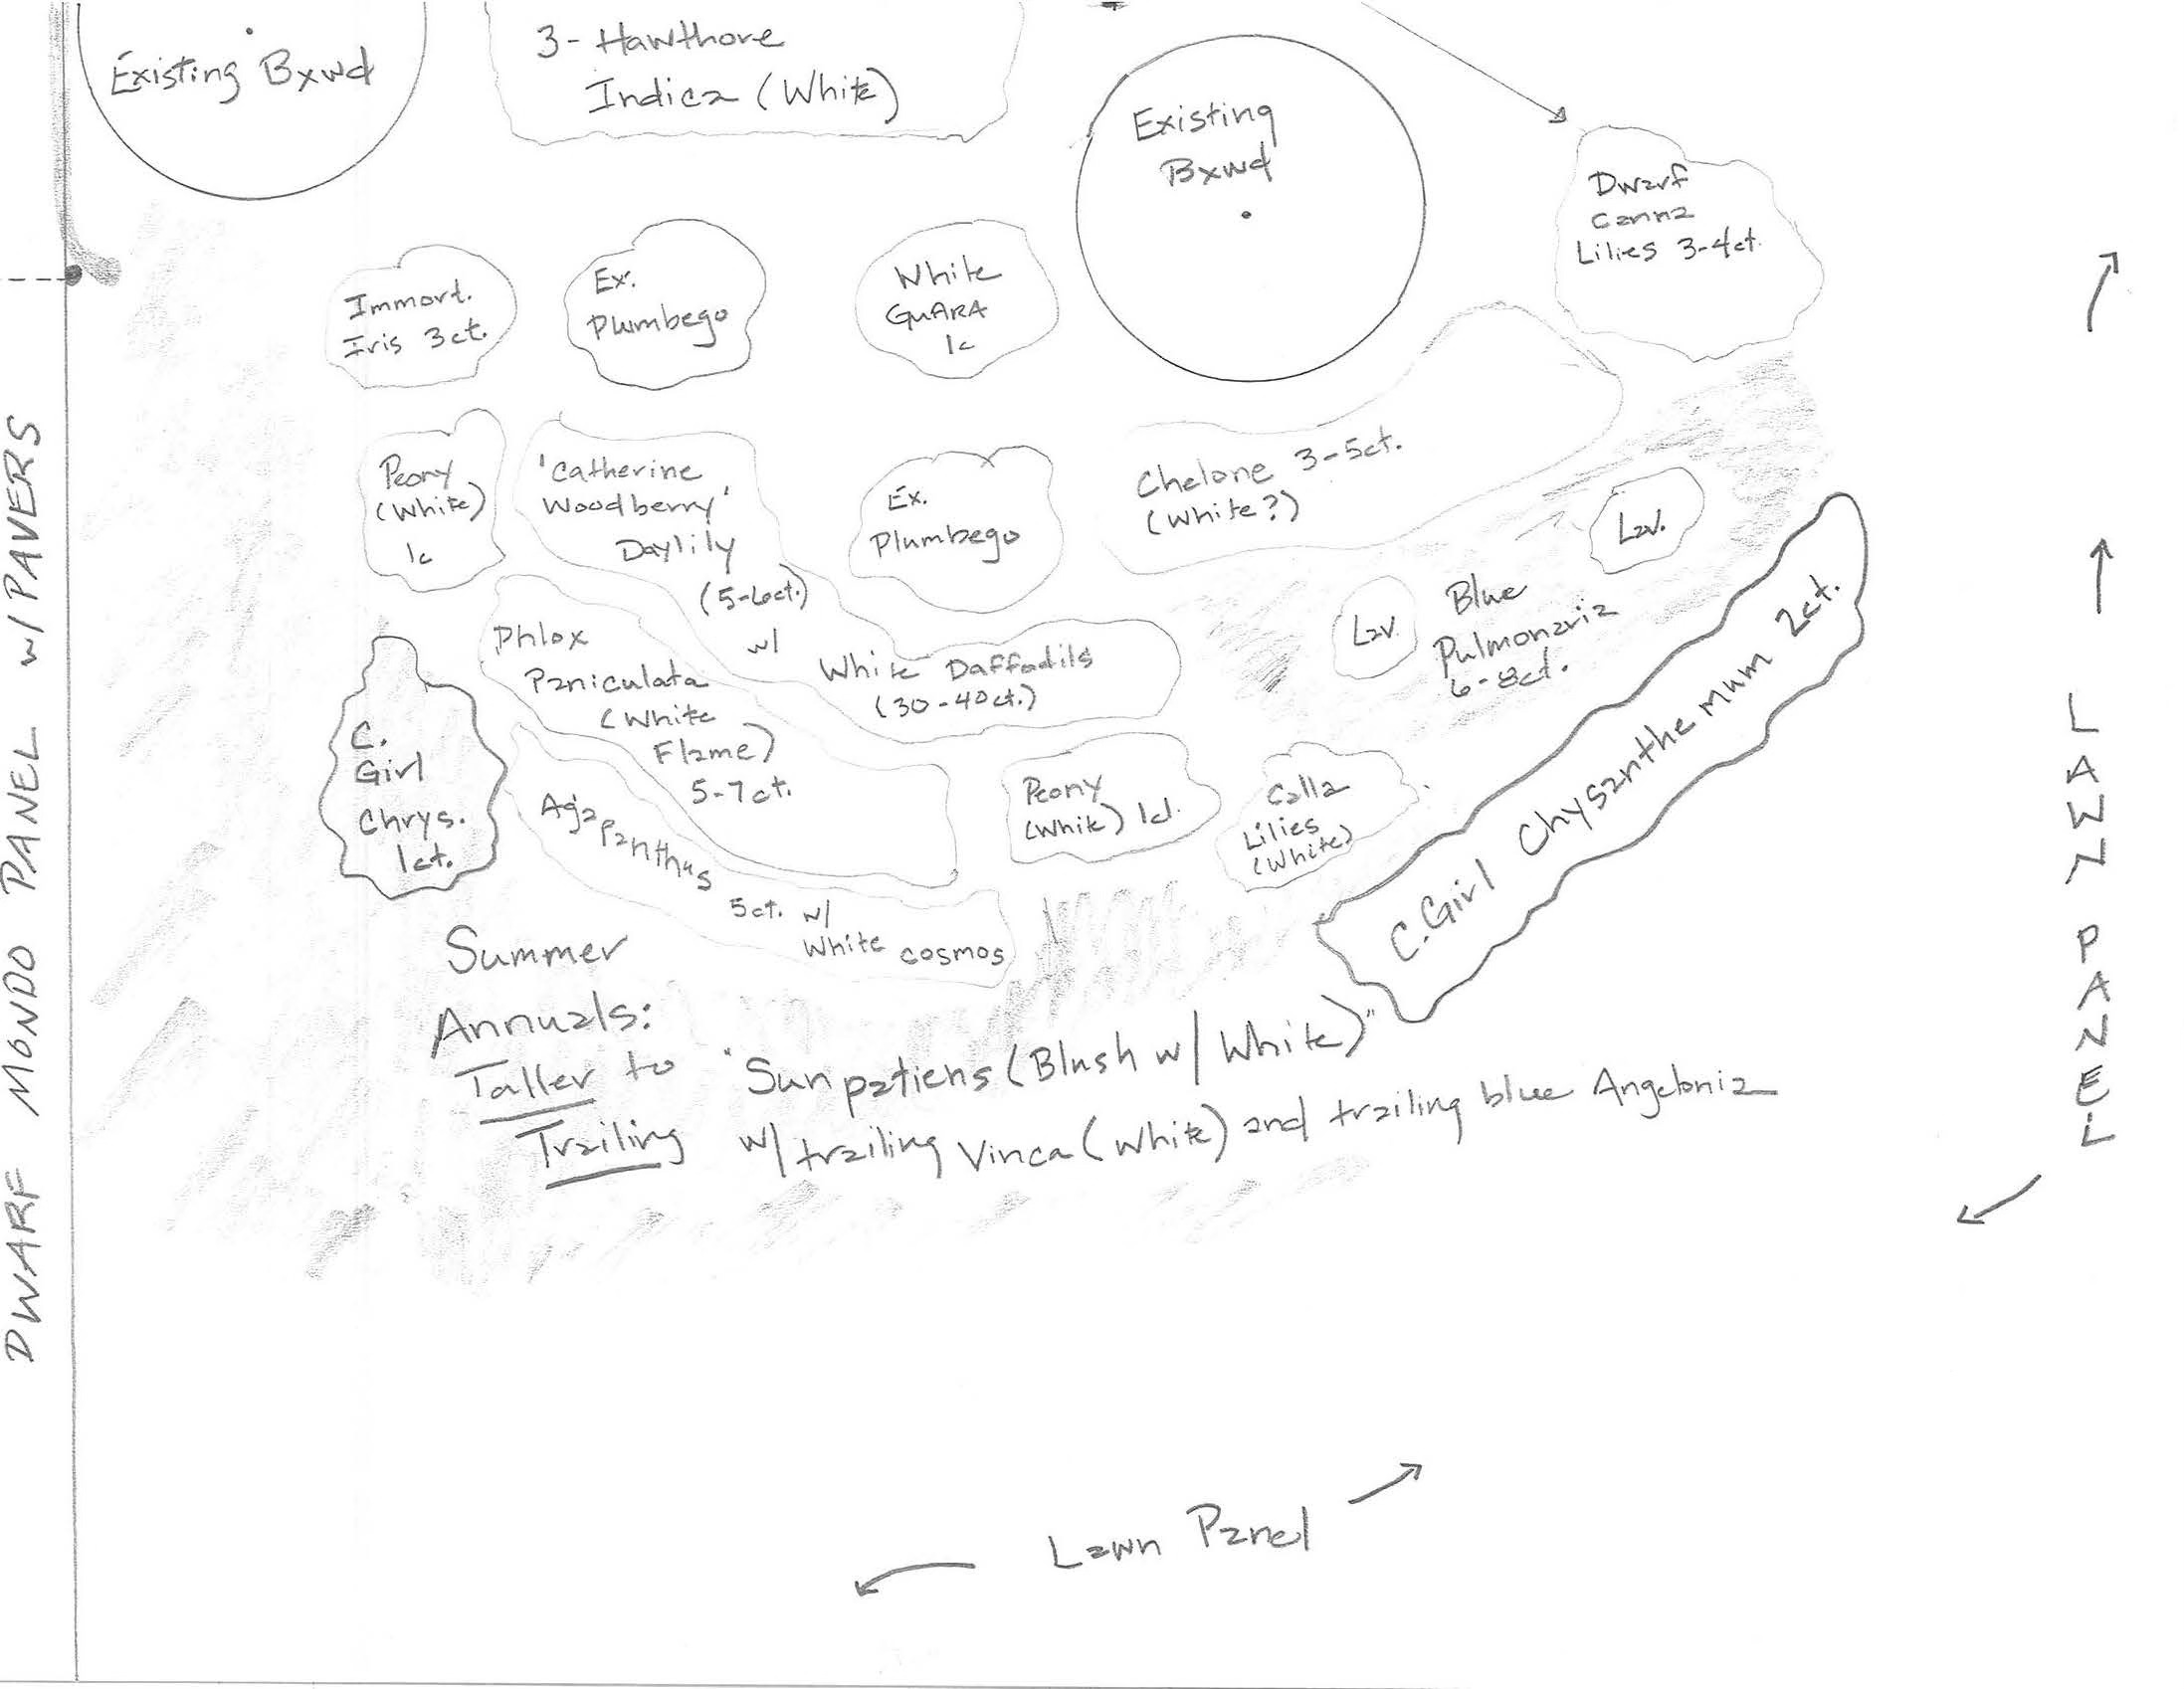 Existing Bxwd
3- Hawthore
Indica (White)
Existing
Bxwd
Dwarf
Canna
Lilies 3-4ct.
Immort.
Iris 3ct.
Ex.
Plumbego
White
GUARA
1c
Peony
(White)
1c
'Catherine
Woodberry'
Daylily
(5-6ct.)
w/
White Daffodils
(30-40ct.)
Ex.
Plumbego
Chelone 3-5ct.
(White?)
Lav.
Lav.
Blue
Pulmonaria
6-8ct.
C. Girl Chysanthemum 2ct.
Phlox
Paniculata
(White
Flame)
5-7ct.
C.
Girl
Chrys.
1ct.
Agapanthus 5ct. w/
White cosmos
Peony
(White) 1ct.
Calla
Lilies
(White)
Summer
Annuals:
Taller to
Trailing
"Sunpatiens (Blush w/ White)"
w/ trailing Vinca (White) and trailing blue Angelonia
DWARF MONDO PANEL w/ PAVERS
LAWN PANEL
Lawn Panel